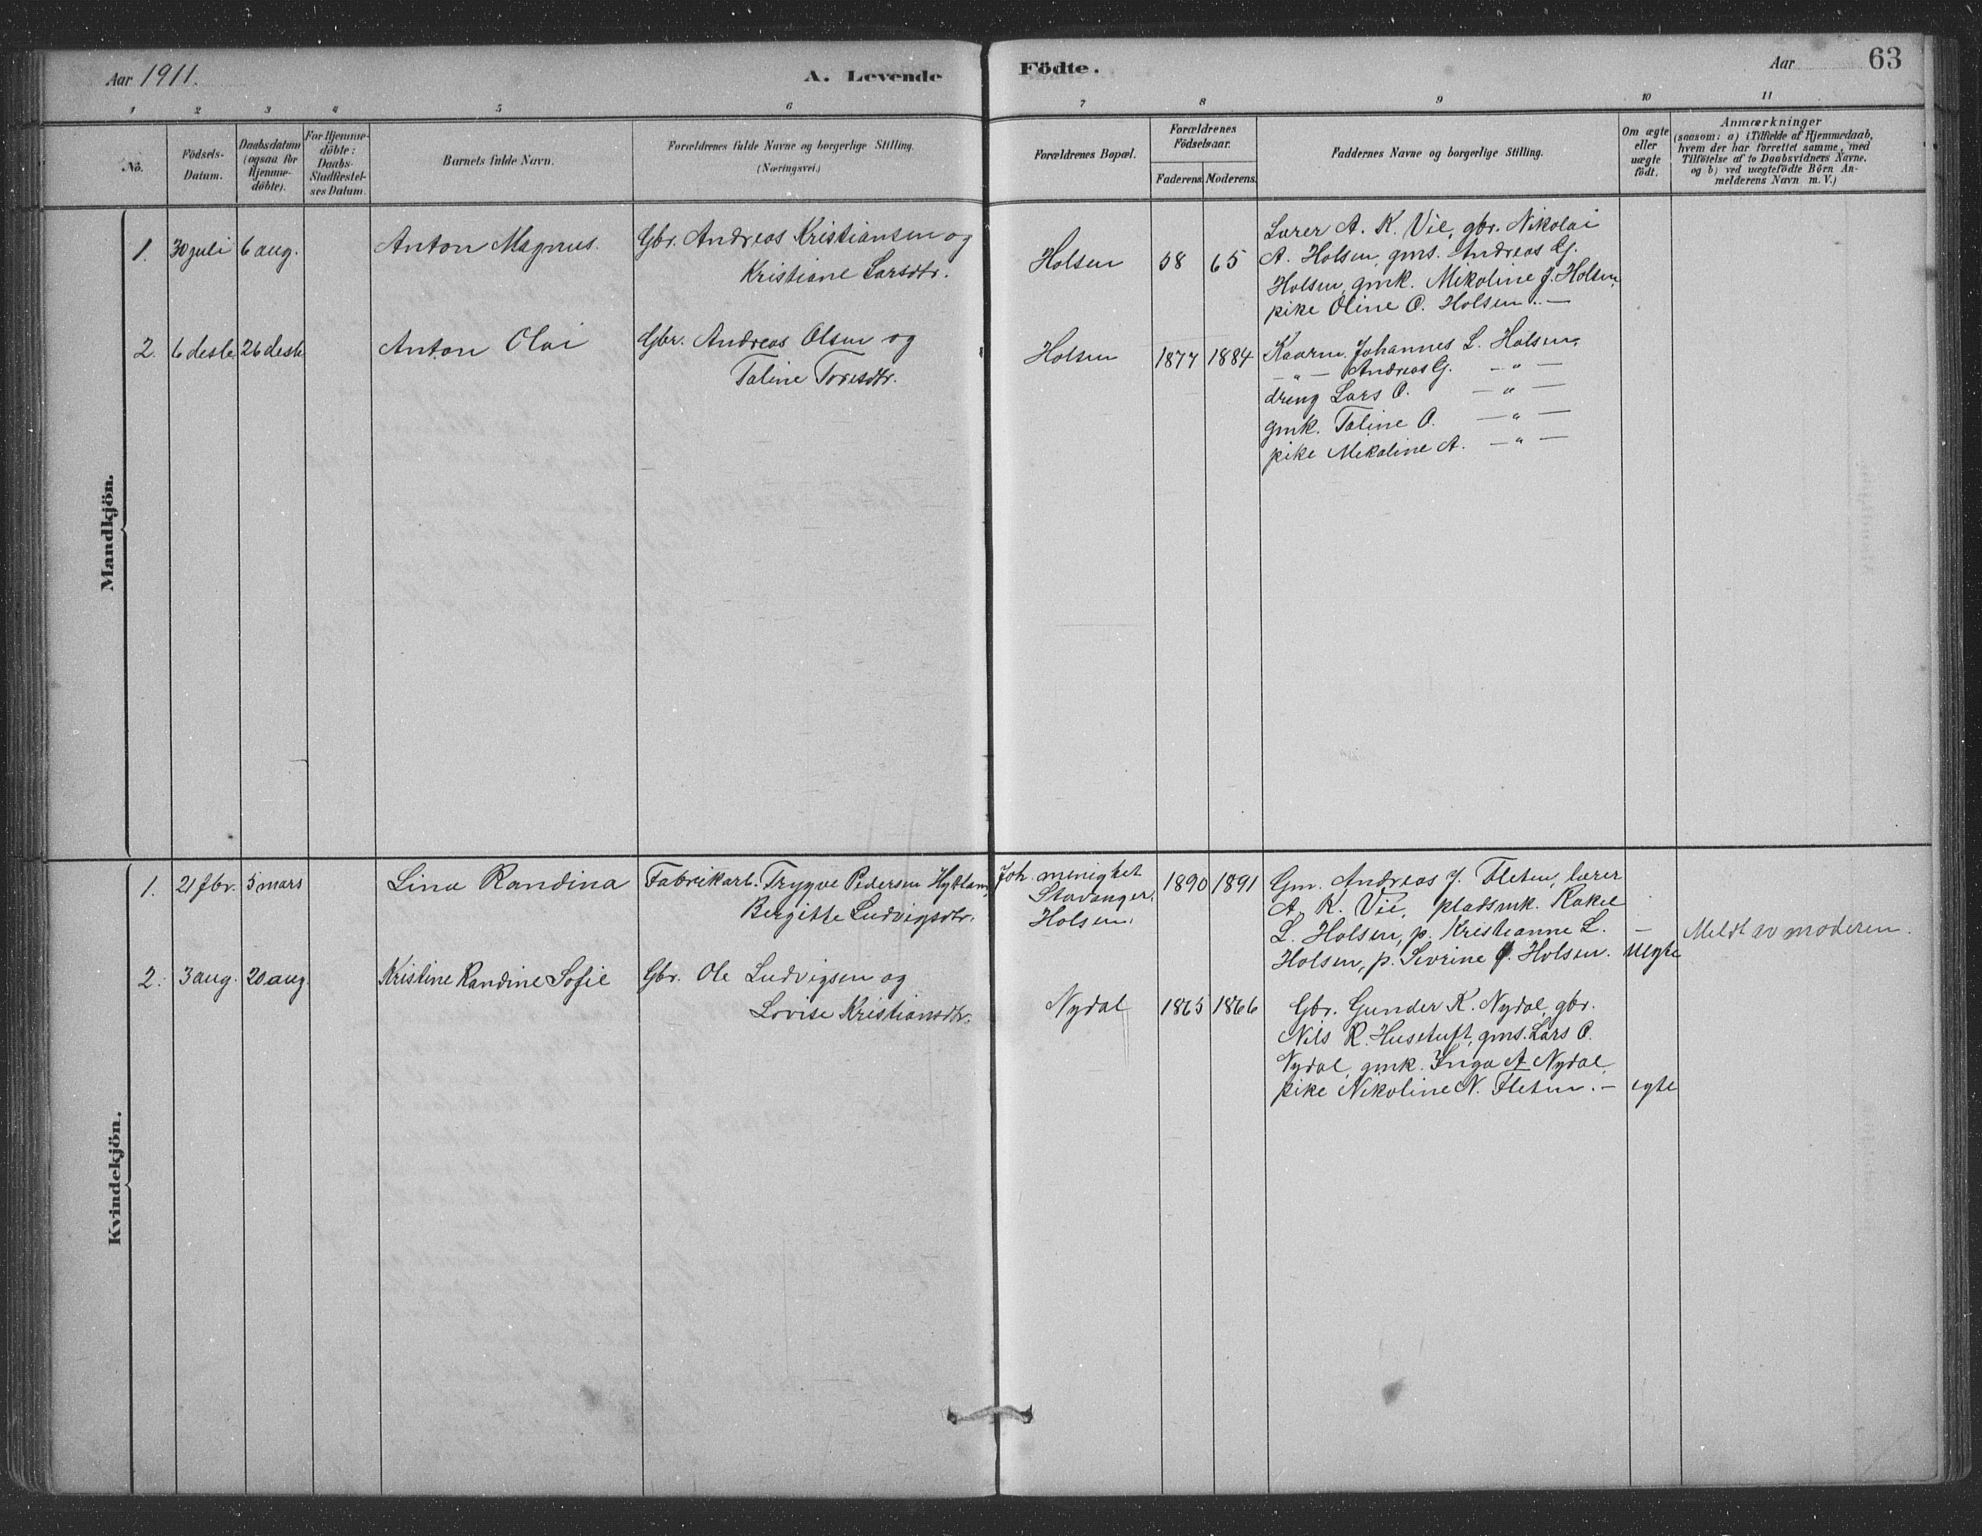 Aar 1911. A. Levende Födte. Aar 63
1 2 3 4 5 6 7 8 9 10 11
No.
Födsels-
Datum.
Daabsdatum
(ogsaa for
Hjemme-
döbte).
For Hjemme-
döbte:
Daabs-
Stadfæstel-
ses Datum.
Barnets fulde Navn.
Forældrenes fulde Navne og borgerlige Stilling.
(Næringsvei.)
Forældrenes Bopæl.
Forældrenes
Födselsaar.
Faderens. Moderens.
Faddernes Navne og borgerlige Stilling.
Om ægte
eller
uægte
födt.
Anmærkninger
(saasom: a) i Tilfælde af Hjemmedaab,
hvem der har forrettet samme, med
Tilföielse af to Daabsvidners Navne.
og b) ved uægtefödte Börn An-
melderens Navn m. V.)
Mandkjön.
1. 30 juli 6 aug. Anton Magnus. Gbr. Andreas Kristiansen og
Kristiane Larsdtr.
Holsen 58 65
Lærer A. K. Vie, gbr. Nikolai
A. Holsen, gms. Andreas G.
Holsen, gmk. Mikoline J. Holsen,
pike Oline O. Holsen. –
2. 6 desbr 26 desbr Anton Olai Gbr. Andreas Olsen og
Taline Toresdtr.
Holsen 1877 1884
Kaarm. Johannes L. Holsen,
— " — Andreas G. — " —
dreng Lars O. — " —
gmk. Taline O. — " —
pike Mikoline A. — " —
Kvindekjön.
1. 21 fbr. 5 mars Lina Randina Fabrikarb. Trygve Pedersen
Bergitte Ludvigsdtr.
Joh. menighet
Stavanger.
Holsen.
1890 1891
Gm. Andreas J. Fleten, lærer
A. K. Vie, pladsmk. Rakel
L. Holsen, p. Kristianne L.
Holsen, p. Sevrine Holsen.
– uegte
Meldt av moderen.
2. 3 aug. 20 aug. Kristine Randine Sofie Gbr. Ole Ludvigsen og
Lovise Kristiansdtr.
Nydal 1865 1866
Gbr. Gunder K. Nydal, gbr.
Nils R. Hustuft, gms. Lars O.
Nydal, gmk. Inga A Nydal,
pike Nikoline N. Fleten. – egte